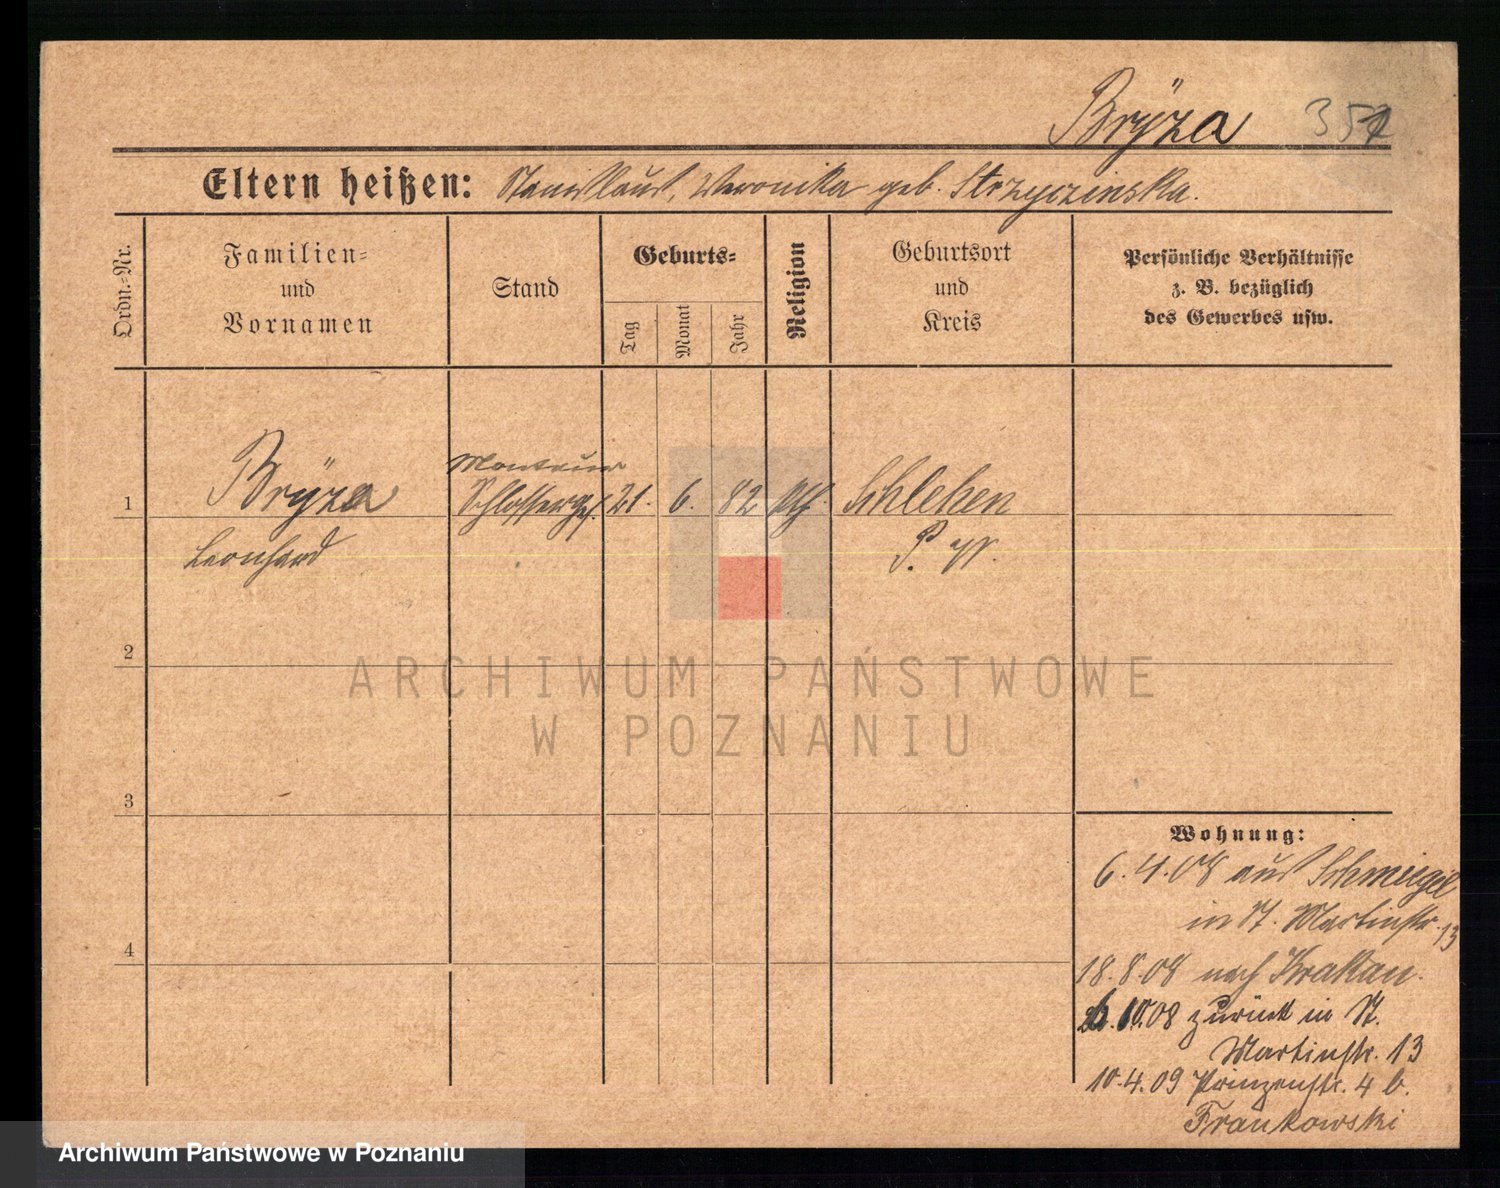 Brÿza 351
Eltern heißen: Stanislaus, Weronika geb. Strzyczinska.
Ordn.-Nr.
Familien-
und
Vornamen
Stand
Geburts-
Tag
Monat
Jahr
Religion
Geburtsort
und
Kreis
Persönliche Verhältnisse
z. B. bezüglich
des Gewerbes usw.
Monteur
1 Brÿza Schlosserges. 21. 6. 82 kth. Schlehen
Leonhard P. W.
2
ARCHIWUM PAŃSTWOWE
W POZNANIU
3
Wohnung:
6.4.08 aus Schmiegel
in St. Martinstr. 13
4
18.8.08 nach Krakau.
10.08 zurück in St.
Martinstr. 13
10.4.09 Prinzenstr. 4 b.
Frankowski
Archiwum Państwowe w Poznaniu